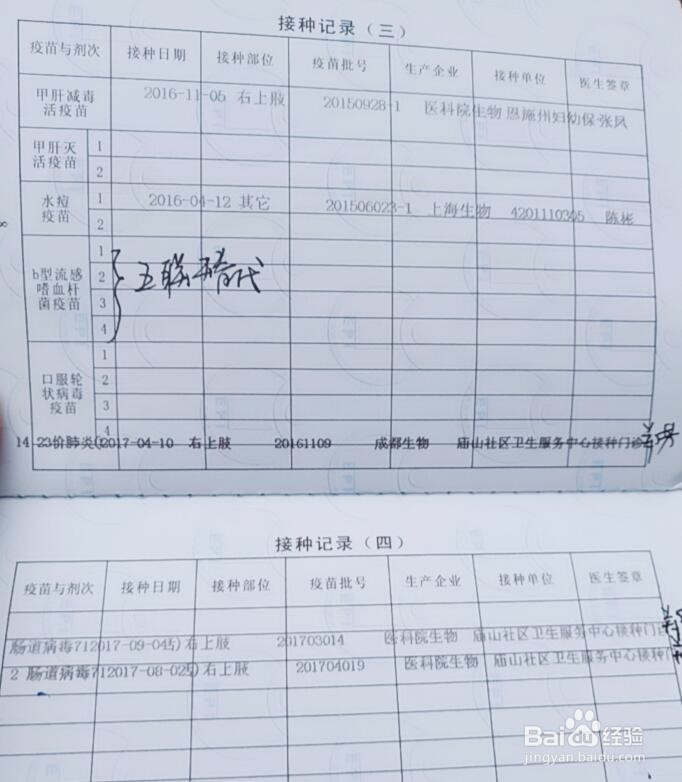 接种记录（三）
疫苗与剂次 接种日期 接种部位 疫苗批号 生产企业 接种单位 医生签章
甲肝减毒活疫苗 2016-11-05 右上肢 20150928-1 医科院生物 恩施州妇幼保 张凤
甲肝灭活疫苗 1
2
水痘疫苗 1 2016-04-12 其它 201506023-1 上海生物 4201110305 陈彬
2
b型流感嗜血杆菌疫苗 1
2 五联替代
3
4
口服轮状病毒疫苗 1
2
3
4
14 23价肺炎(2017-04-10 右上肢 20161109 成都生物 庙山社区卫生服务中心接种门诊
接种记录（四）
疫苗与剂次 接种日期 接种部位 疫苗批号 生产企业 接种单位 医生签章
肠道病毒712017-09-04活)右上肢 201703014 医科院生物 庙山社区卫生服务中心接种门诊
2 肠道病毒712017-08-02活)右上肢 201704019 医科院生物 庙山社区卫生服务中心接种门
Baidu经验
jingyan.baidu.com